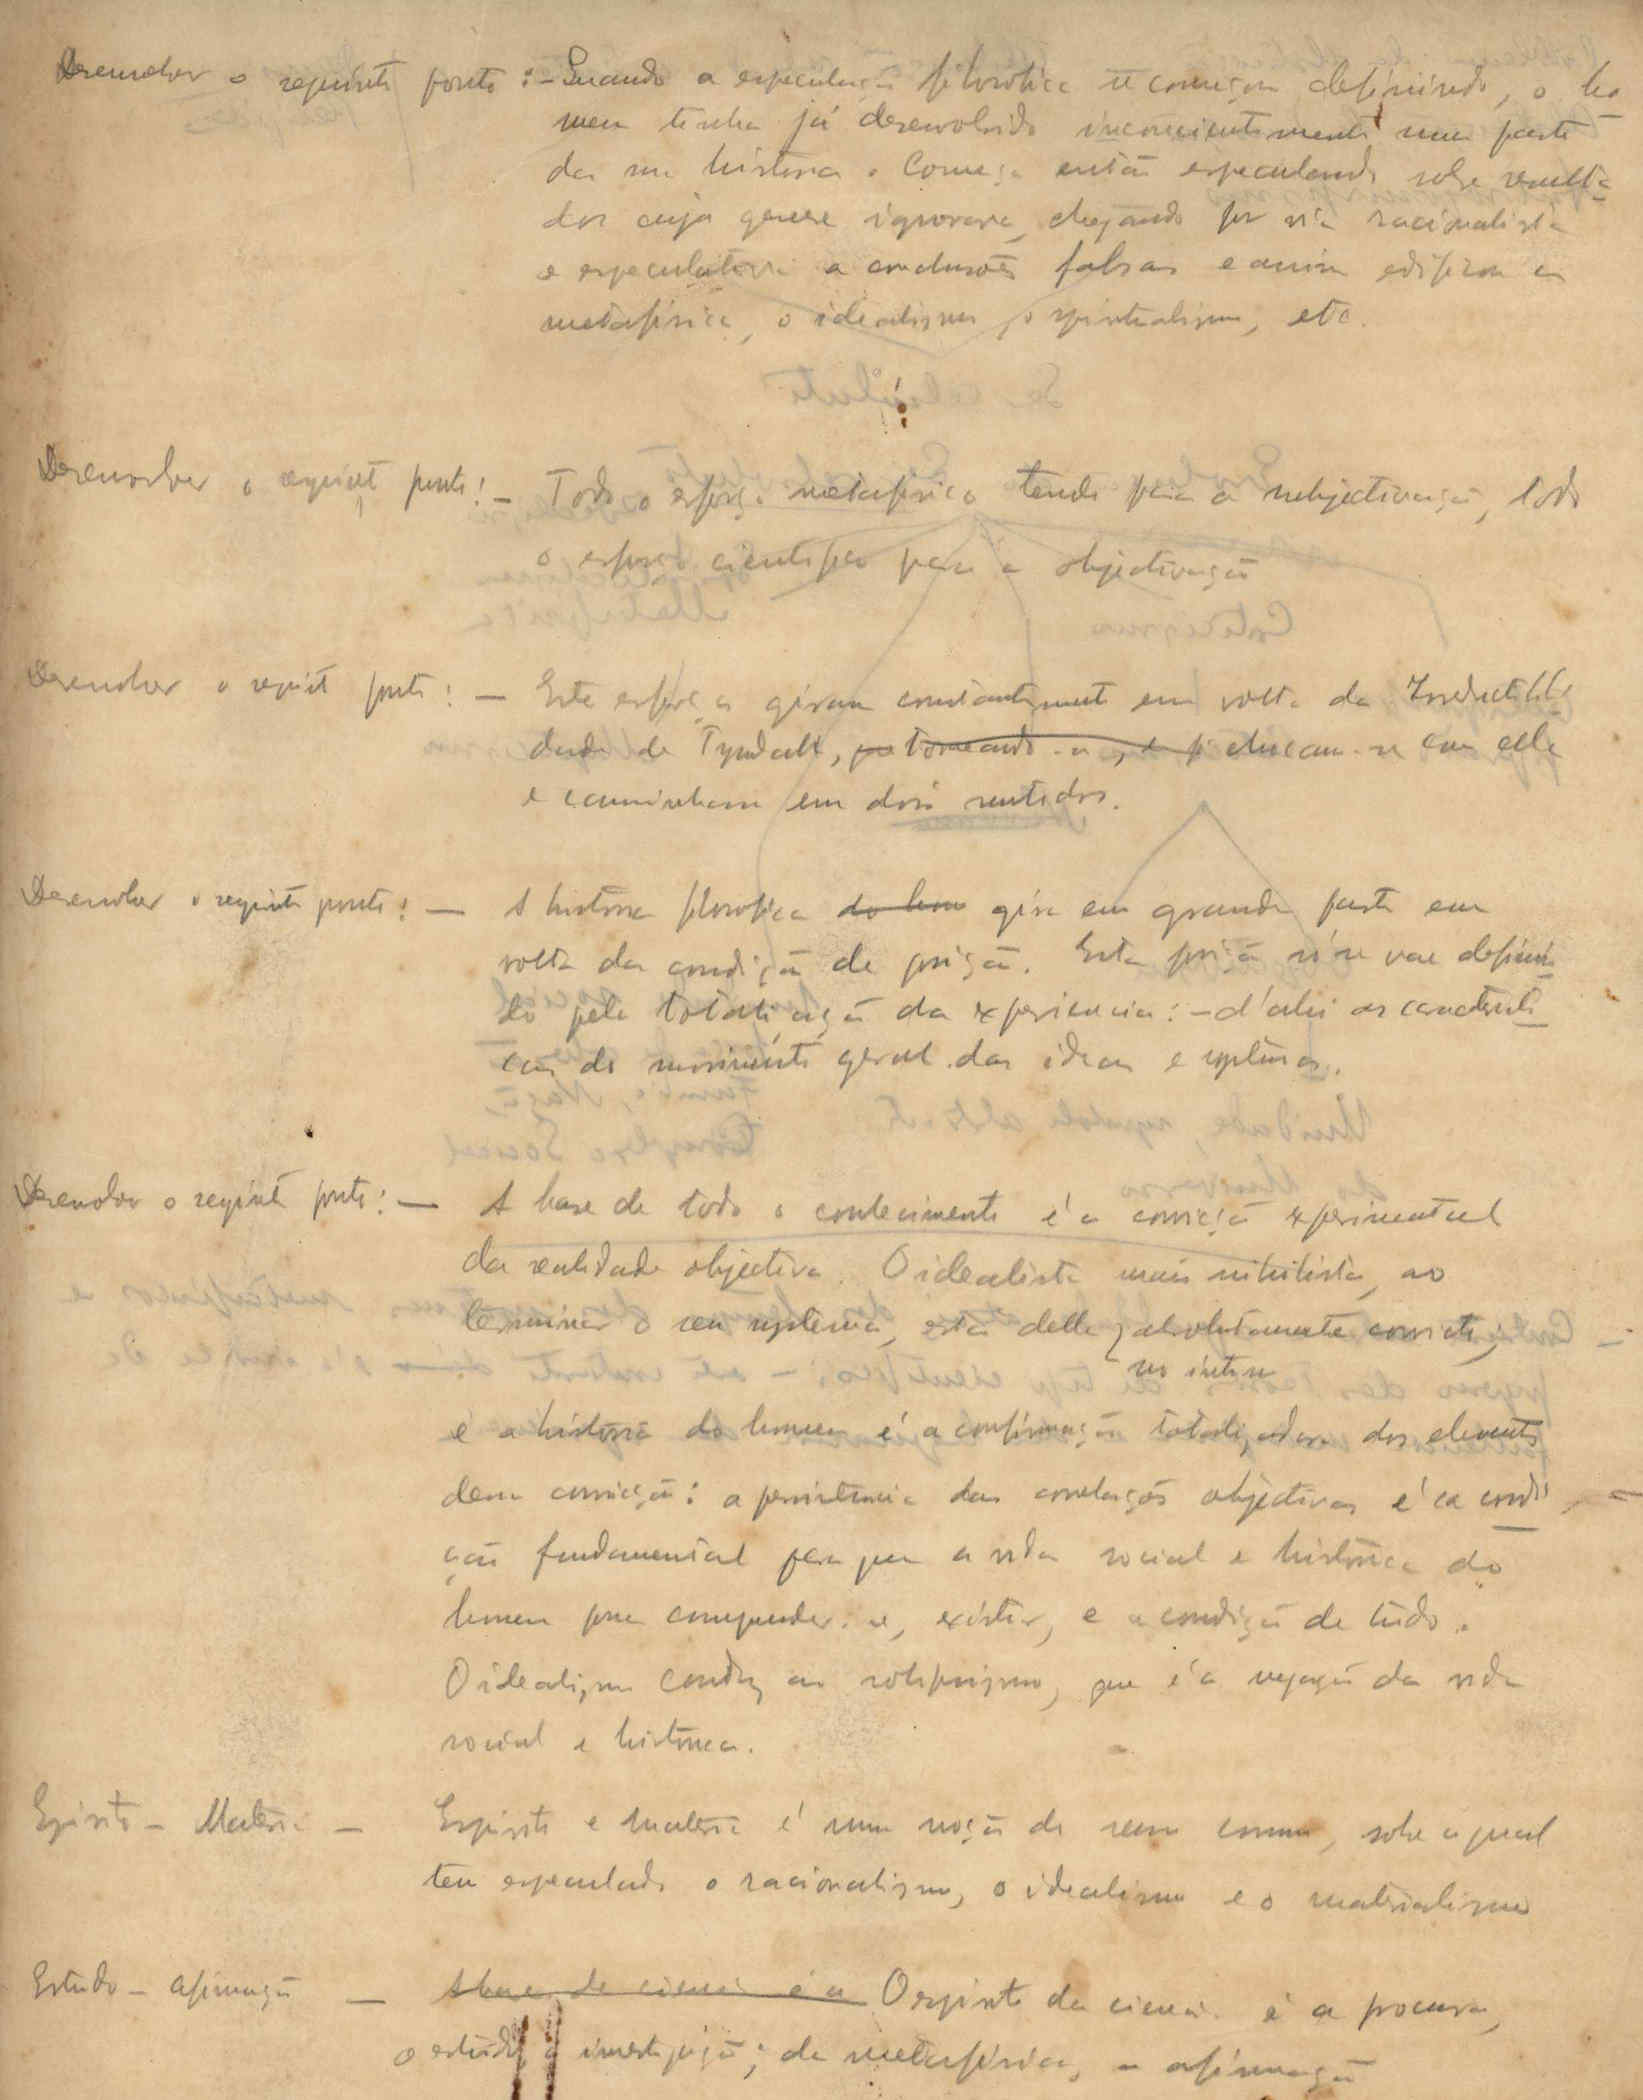 Desenvolver o seguinte ponto: – Quando a especulação filosofica se começou definindo, o ho
mem tinha já desenvolvido inconscientemente uma parte
da sua historia. Começa então especulando sobre resulta-
dos cuja genese ignorava, chegando por via racionalista
e especulativa a conclusões falsas e assim edificou a
metafisica, o idealismo, o spiritualismo, etc.
Desenvolver o seguinte ponto: – Todo o esforço metafisico tende para a subjectivação, todo
o esforço cientifico para a objectivação
Desenvolver o seguinte ponto: – Este esforços giram constantemente em volta da Irreductibili-
dade de Tyndall, torneando-a, e chocam-se com ella
e caminham em dois sentidos.
Desenvolver o seguinte ponto: – A historia filosofica do hom gira em grande parte em
volta da condição de posição. Esta posição só se vae definin-
do pela totalisação da experiencia: – d'ahi as caracteristi-
cas do movimento geral das ideas e systemas.
Desenvolver o seguinte ponto: – A base de todo o conhecimento é a convicção experimental
da realidade objectiva. O idealista mais niilista, ao
terminar o seu systema, está della absolutamente convicto,
no intimo
e a historia do homem é a confirmação totalizadora dos elementos
dessa convicção: a persistencia das correlações objectivas é a condi-
ção fundamental para que a vida social e historica do
homem possa comprender-se, existir, e a condição de tudo.
O idealismo conduz ao solipsismo, que é a negação da vida
social e historica.
Espirito – Materia – Espirito e materia é uma noção do senso comum, sobre a qual
tem especulado o racionalismo, o idealismo e o materialismo
Estudo – afirmação – A base da ciencia é a O espirito da ciencia é a procura,
o estudo, a investigação; da metafisica, a afirmação